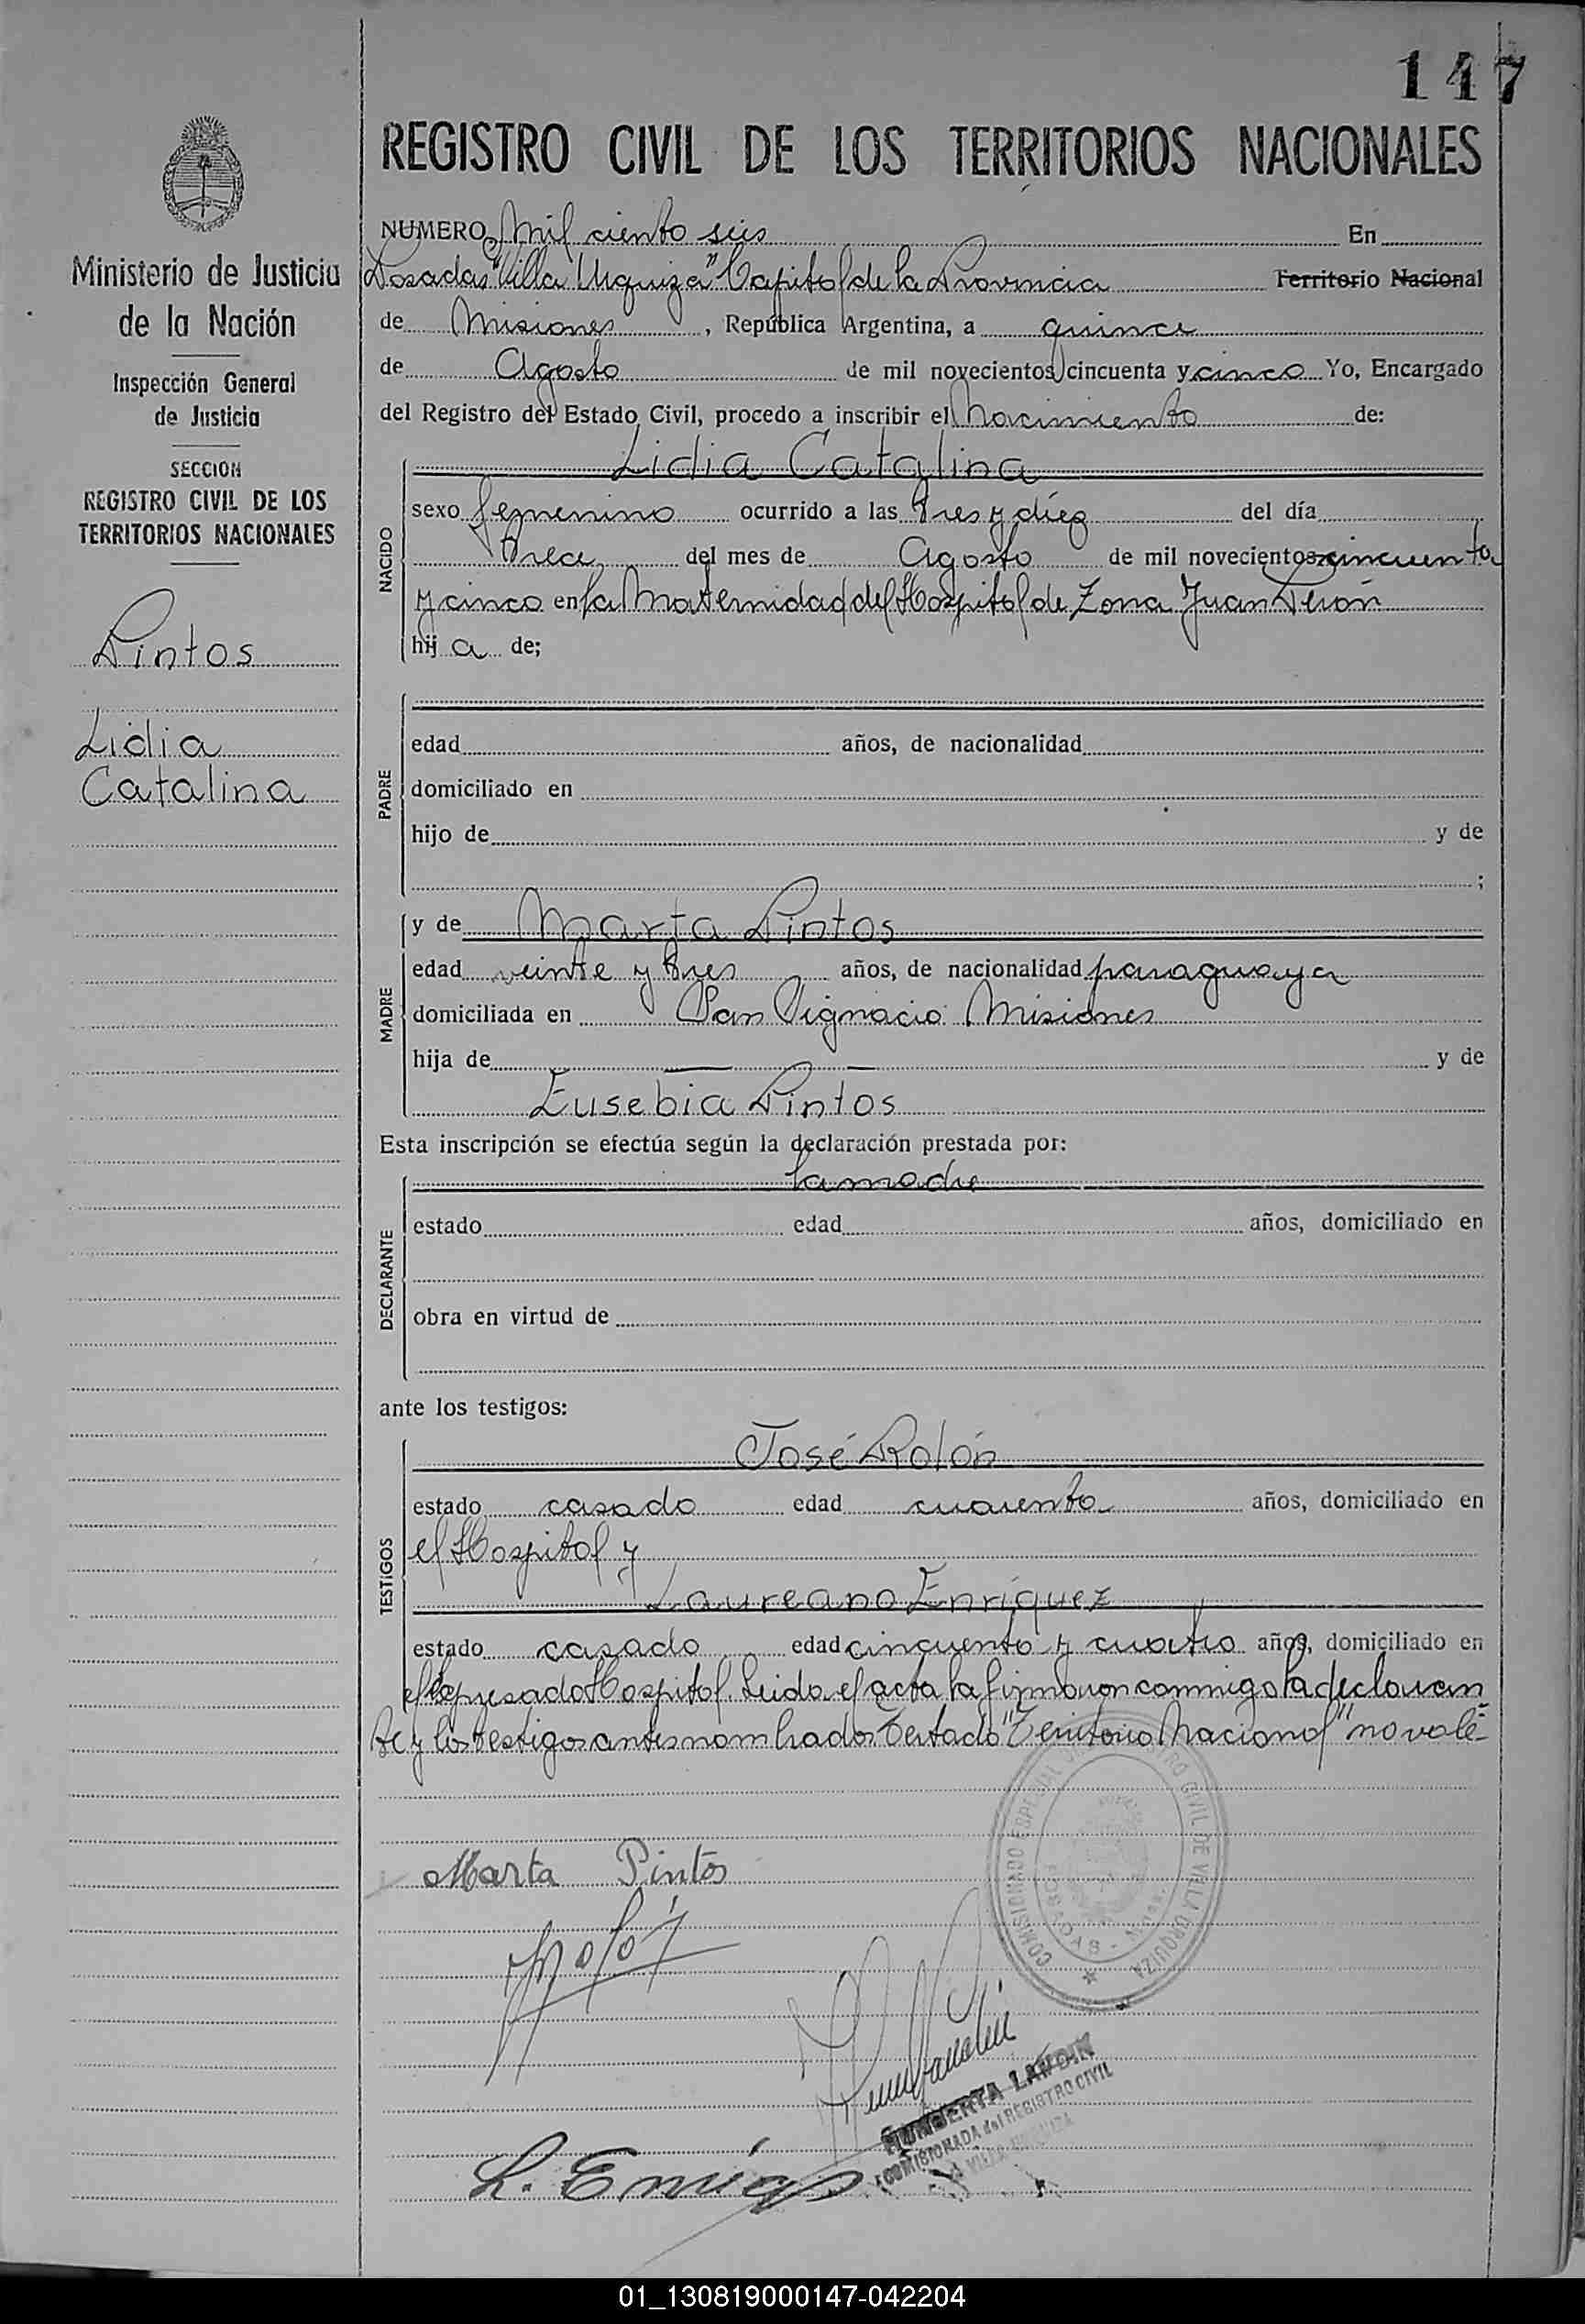 147
REGISTRO CIVIL DE LOS TERRITORIOS NACIONALES
Ministerio de Justicia
de la Nación
Inspección General
de Justicia
SECCION
REGISTRO CIVIL DE LOS
TERRITORIOS NACIONALES
Pintos
Lidia
Catalina
NUMERO Mil ciento seis En
Posadas "Villa Urquiza" Capital de la Provincia Territorio Nacional
de Misiones, República Argentina, a quince
de Agosto de mil novecientos cincuenta y cinco Yo, Encargado
del Registro del Estado Civil, procedo a inscribir el Nacimiento de:
Lidia Catalina
NACIDO
sexo femenino ocurrido a las tres y diez del día
trece del mes de Agosto de mil novecientos cincuenta
y cinco en la Maternidad del Hospital de Zona Juan Perón
hija de;
PADRE
edad años, de nacionalidad
domiciliado en
hijo de y de
;
MADRE
y de Marta Pintos
edad veinte y tres años, de nacionalidad paraguaya
domiciliada en San Ignacio Misiones
hija de — — y de
Eusebia Pintos
Esta inscripción se efectúa según la declaración prestada por:
la madre
DECLARANTE
estado edad años, domiciliado en
obra en virtud de
ante los testigos:
TESTIGOS
José Rolón
estado casado edad cuarenta años, domiciliado en
el Hospital y
Laureano Enríquez
estado casado edad cincuenta y cuatro años, domiciliado en
el expresado Hospital. Leida el acta la firmaron conmigo la declaran-
te y los testigos antes nombrados Testado "Territorio Nacional" no vale-
Marta Pintos
COMISIONADO ESPECIAL REGISTRO CIVIL DE VILLA URQUIZA
POSADAS - Misiones
HUMBERTA LANDIN
COMISIONADA del REGISTRO CIVIL
VILLA URQUIZA
01_130819000147-042204